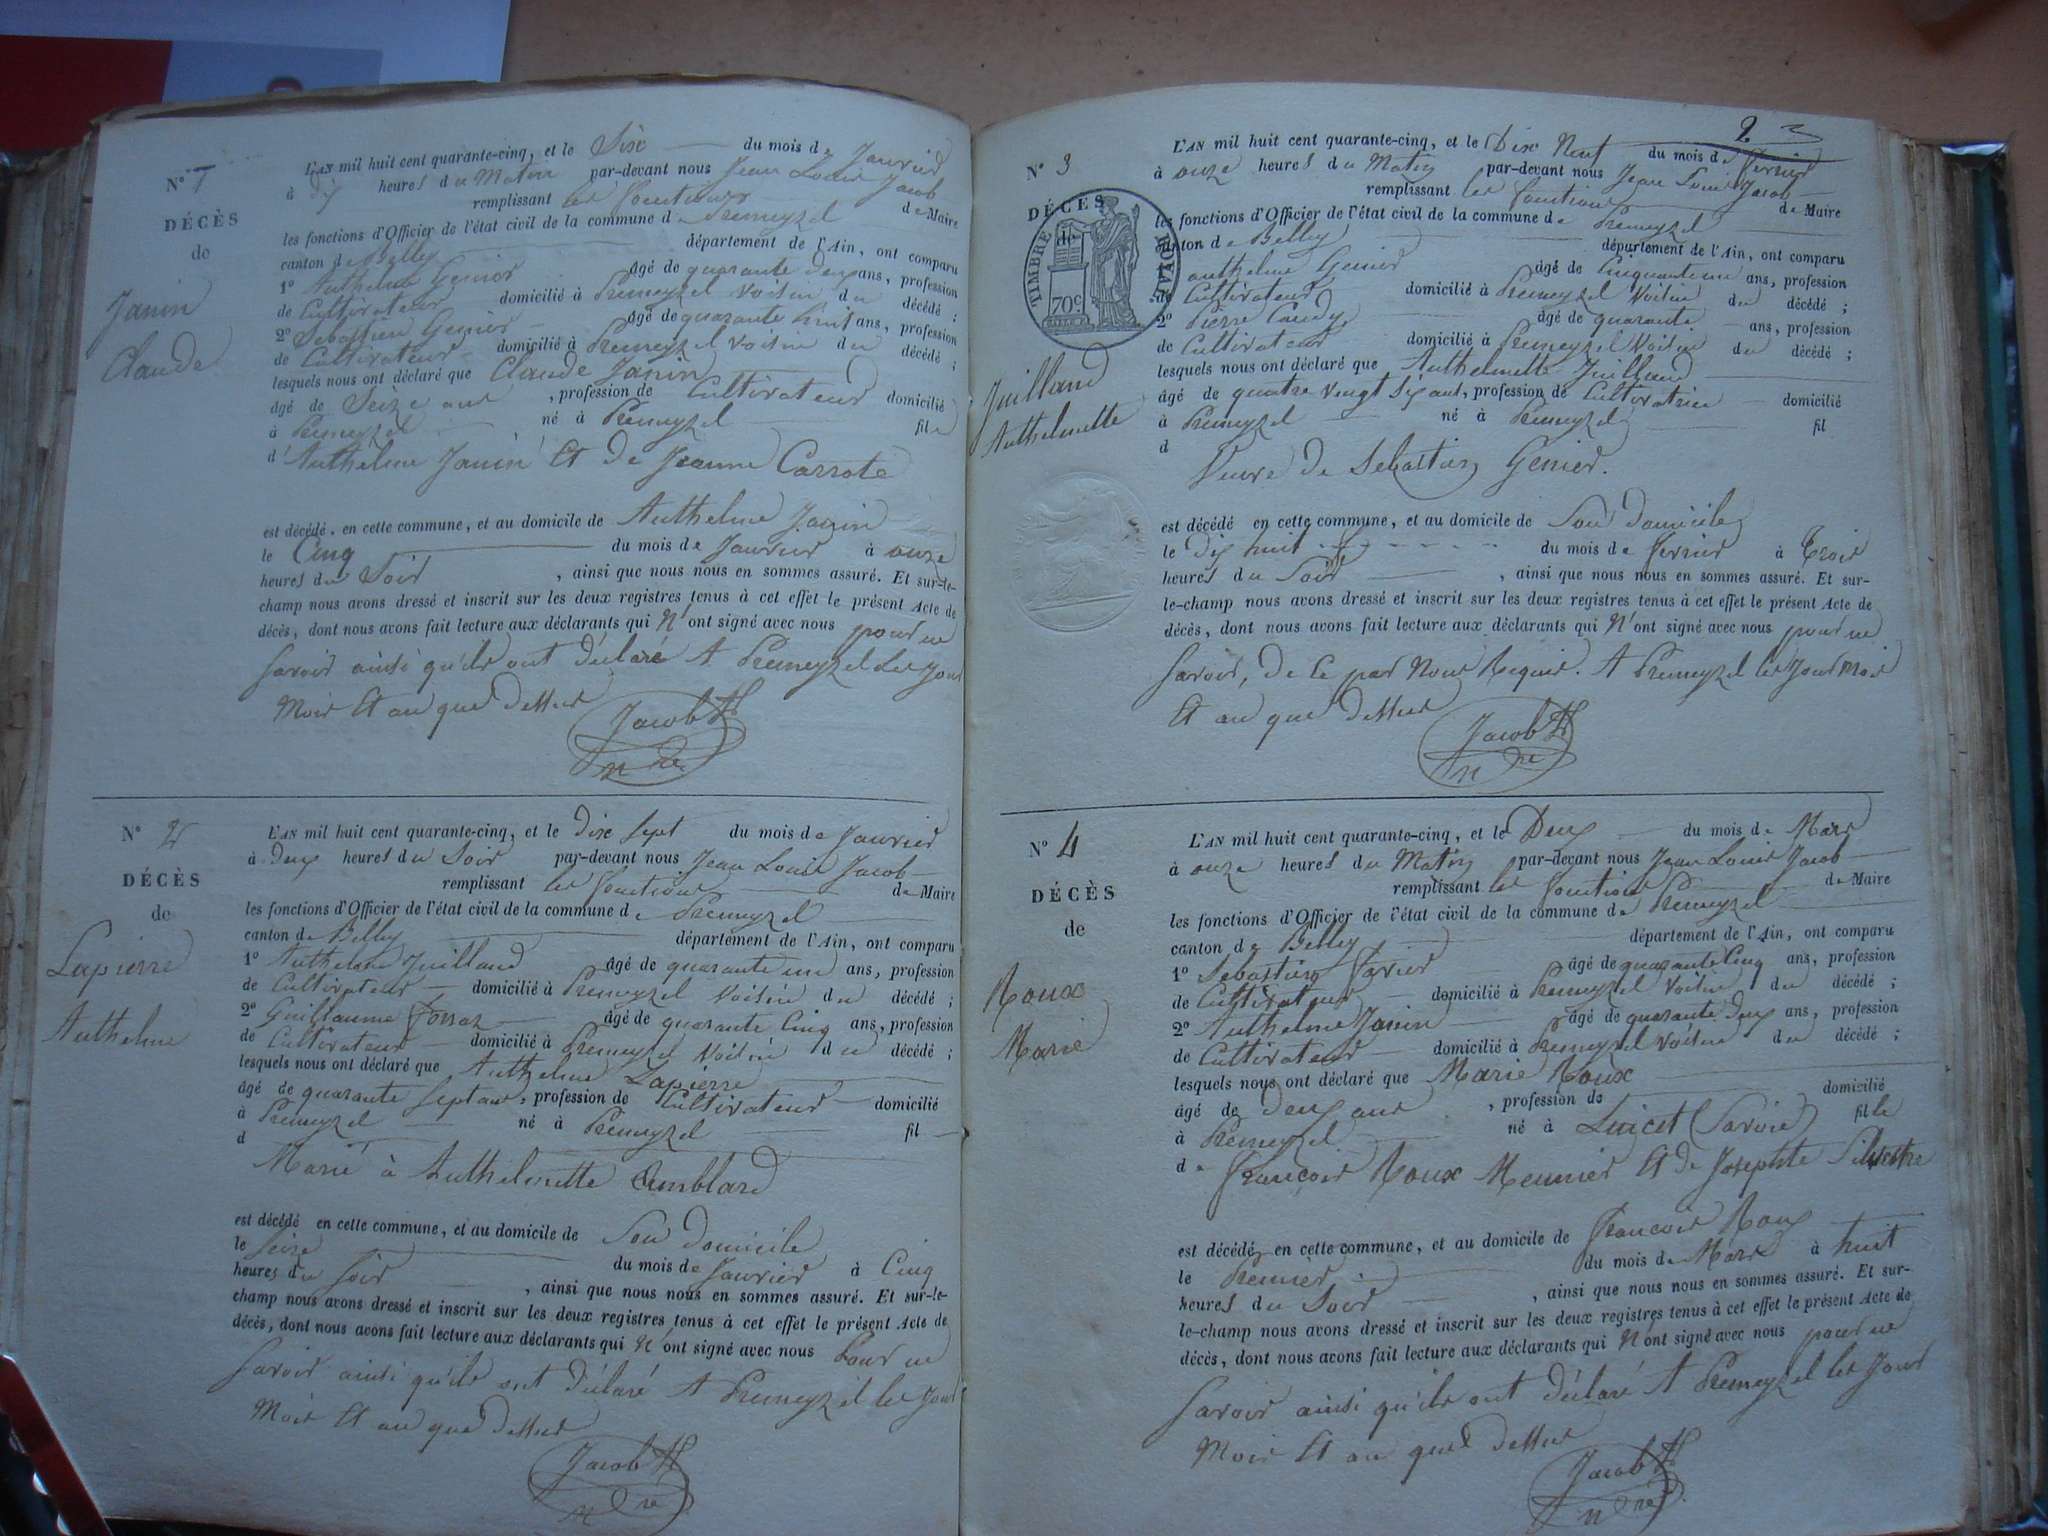 N° 1
DÉCÈS
de
Janin
Claude
L'AN mil huit cent quarante-cinq, et le Six du mois de Janvier
à dix heures du Matin par-devant nous Jean Louis Jacob
remplissant les fonctions de Maire
les fonctions d'Officier de l'état civil de la commune de Premeyzel
canton de Belley département de l'Ain, ont comparu
1° Anthelme Genier âgé de quarante deux ans, profession
de Cultivateur domicilié à Premeyzel voisin du décédé ;
2° Sebastien Genier âgé de quarante huit ans, profession
de Cultivateur domicilié à Premeyzel voisin du décédé ;
lesquels nous ont déclaré que Claude Janin
âgé de Seize ans, profession de Cultivateur domicilié
à Premeyzel né à Premeyzel fils
d'Anthelme Janin Et de Jeanne Carrote
est décédé en cette commune, et au domicile de Anthelme Janin
le Cinq du mois de Janvier à onze
heures du Soir, ainsi que nous nous en sommes assuré. Et sur-le-
champ nous avons dressé et inscrit sur les deux registres tenus à cet effet le présent Acte de
décès, dont nous avons fait lecture aux déclarants qui N'ont signé avec nous pour ne
Savoir ainsi qu'ils ont déclaré A Premeyzel les Jour
Mois Et an que dessus
Jacob
N° 2
DÉCÈS
de
Lapierre
Anthelme
L'AN mil huit cent quarante-cinq, et le dix sept du mois de Janvier
à deux heures du Soir par-devant nous Jean Louis Jacob
remplissant les fonctions de Maire
les fonctions d'Officier de l'état civil de la commune de Premeyzel
canton de Belley département de l'Ain, ont comparu
1° Anthelme Juilland âgé de quarante un ans, profession
de Cultivateur domicilié à Premeyzel Voisin du décédé ;
2° Guillaume âgé de quarante Cinq ans, profession
de Cultivateur domicilié à Premeyzel Voisin du décédé ;
lesquels nous ont déclaré que Anthelme Lapierre
âgé de quarante Sept ans, profession de Cultivateur domicilié
à Premeyzel né à Premeyzel fil
d
Marié à Anthelmette Amblard
est décédé en cette commune, et au domicile de Son domicile
le Seize du mois de Janvier à Cinq
heures du Soir, ainsi que nous nous en sommes assuré. Et sur-le-
champ nous avons dressé et inscrit sur les deux registres tenus à cet effet le présent Acte de
décès, dont nous avons fait lecture aux déclarants qui N'ont signé avec nous Pour ne
Savoir ainsi qu'ils ont déclaré A Premeyzel les Jour
Mois Et an que dessus
Jacob
2
N° 3
DÉCÈS
de
TIMBRE ROYAL
70c
Juilland
Anthelmette
L'AN mil huit cent quarante-cinq, et le Dix Neuf du mois de Fevrier
à onze heures du Matin par-devant nous Jean Louis Jacob
remplissant les fonctions de Maire
les fonctions d'Officier de l'état civil de la commune de Premeyzel
canton de Belley département de l'Ain, ont comparu
1° Anthelme Genier âgé de Cinquante un ans, profession
de Cultivateur domicilié à Premeyzel Voisin du décédé ;
2° Pierre âgé de quarante ans, profession
de Cultivateur domicilié à Premeyzel Voisin du décédé ;
lesquels nous ont déclaré que Anthelmette Juilland
âgé de quatre vingt Six ans, profession de Cultivatrice domicilié
à Premeyzel né à Premeyzel fil
d
Veuve de Sebastien Genier.
est décédé en cette commune, et au domicile de Son domicile
le dix huit du mois de Fevrier à Trois
heures du Soir, ainsi que nous nous en sommes assuré. Et sur-
le-champ nous avons dressé et inscrit sur les deux registres tenus à cet effet le présent Acte de
décès, dont nous avons fait lecture aux déclarants qui N'ont signé avec nous pour ne
Savoir, de Ce par Nous Requis. A Premeyzel les Jour Mois
Et an que dessus
Jacob
N° 4
DÉCÈS
de
Roux
Marie
L'AN mil huit cent quarante-cinq, et le Deux du mois de Mars
à onze heures du Matin par-devant nous Jean Louis Jacob
remplissant les fonctions de Maire
les fonctions d'Officier de l'état civil de la commune de Premeyzel
canton de Belley département de l'Ain, ont comparu
1° Sebastien Favier âgé de quarante Cinq ans, profession
de Cultivateur domicilié à Premeyzel Voisin du décédé ;
2° Anthelme Janin âgé de quarante deux ans, profession
de Cultivateur domicilié à Premeyzel Voisin du décédé ;
lesquels nous ont déclaré que Marie Roux
âgé de deux ans, profession de domicilié
à Premeyzel né à (Savoie) fille
de François Roux Meunier Et de Josephte Silvestre
est décédé en cette commune, et au domicile de François Roux
le Premier du mois de Mars à huit
heures du Soir, ainsi que nous nous en sommes assuré. Et sur-
le-champ nous avons dressé et inscrit sur les deux registres tenus à cet effet le présent Acte de
décès, dont nous avons fait lecture aux déclarants qui N'ont signé avec nous pour ne
Savoir ainsi qu'ils ont déclaré A Premeyzel les Jour
Mois Et an que dessus
Jacob